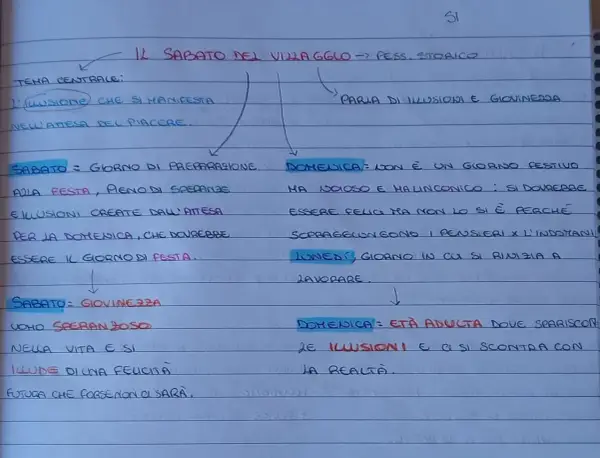 SI
IL SABATO DEL VILLAGGIO → PESS. STORICO
TEMA CENTRALE:
L'ILLUSIONE CHE SI MANIFESTA
NELL'ATTESA DEL PIACERE.
PARLA DI ILLUSIONI E GIOVINEZZA
SABATO = GIORNO DI PREPARAZIONE
ALLA FESTA, PIENO DI SPERANZE
E ILLUSIONI CREATE DALL'ATTESA
PER LA DOMENICA, CHE DOVREBBE
ESSERE IL GIORNO DI FESTA.
SABATO = GIOVINEZZA
UOMO SPERANZOSO
NELLA VITA E SI
ILLUDE DI UNA FELICITÀ
FUTURA CHE FORSE NON CI SARÀ.
DOMENICA = NON È UN GIORNO FESTIVO
MA NOIOSO E MALINCONICO : SI DOVREBBE
ESSERE FELICI MA NON LO SI È PERCHÈ
SOPRAGGIUNGONO I PENSIERI X L'INDOMANI
LUNEDÌ, GIORNO IN CUI SI RINIZIA A
LAVORARE.
DOMENICA = ETÀ ADULTA DOVE SPARISCON
LE ILLUSIONI E CI SI SCONTRA CON
LA REALTÀ.